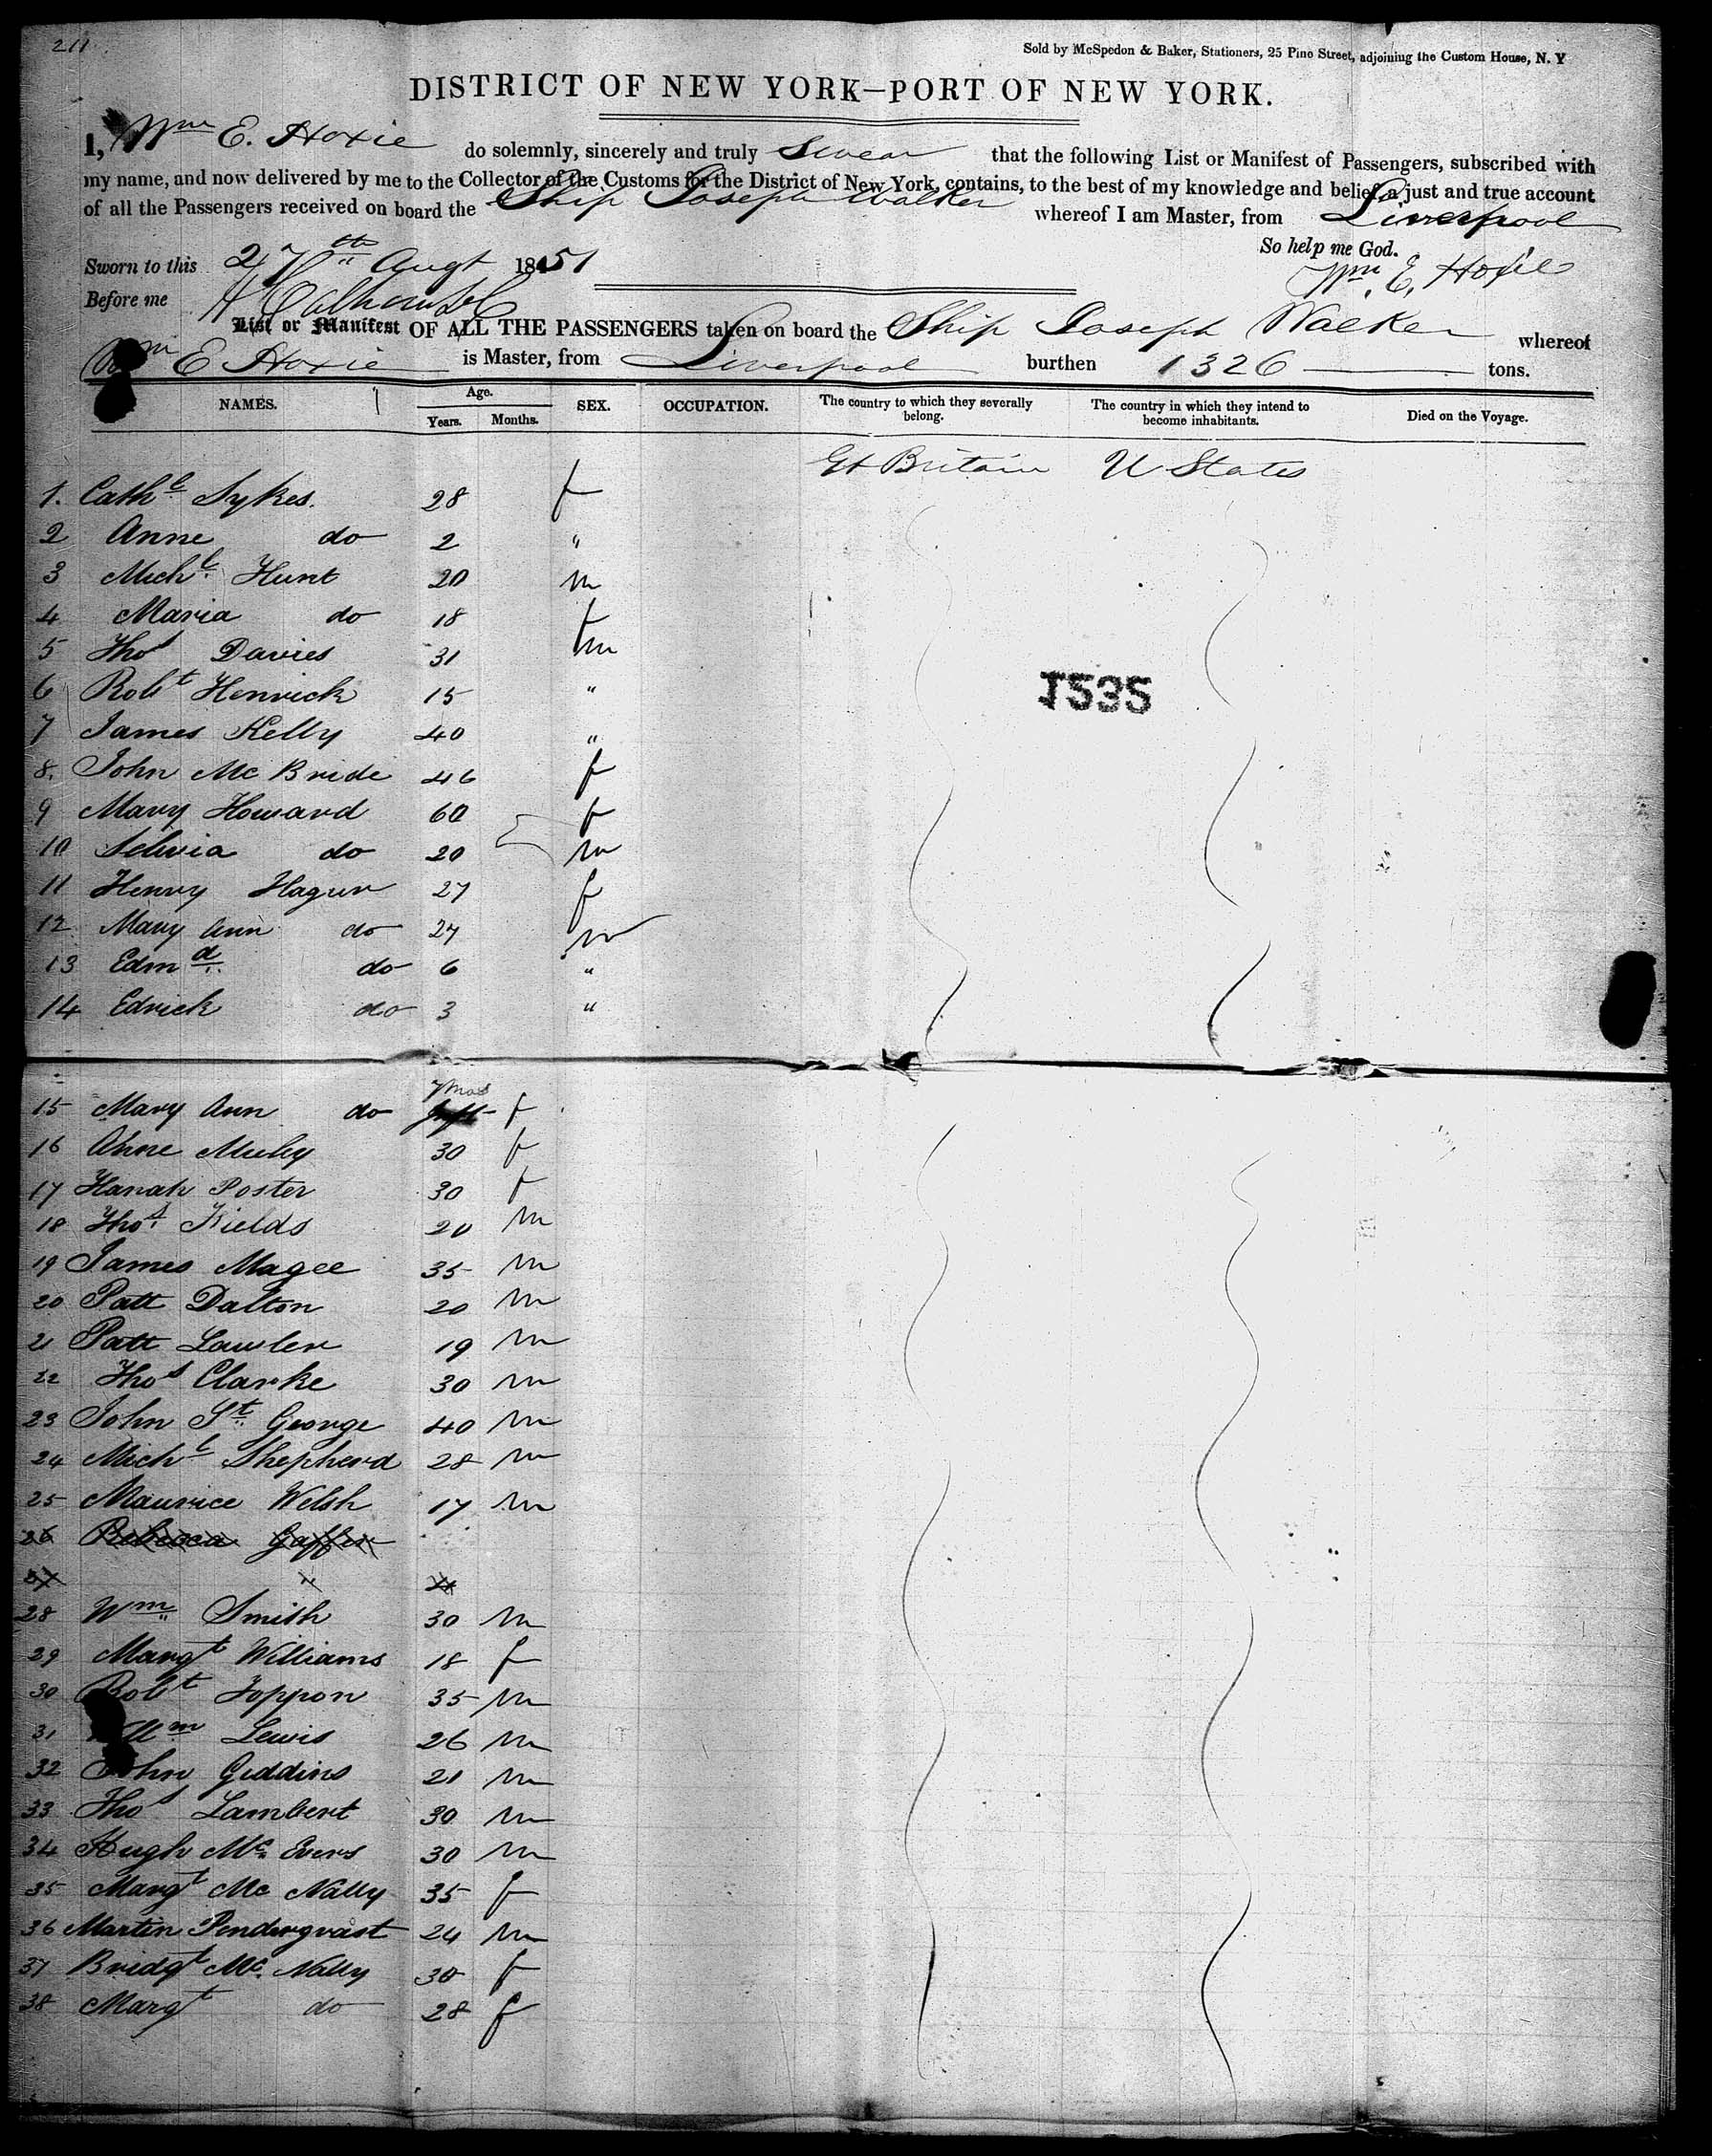 211
Sold by McSpedon & Baker, Stationers, 25 Pine Street, adjoining the Custom House, N. Y
DISTRICT OF NEW YORK—PORT OF NEW YORK.
I, Wm E. Hoxie do solemnly, sincerely and truly Swear that the following List or Manifest of Passengers, subscribed with
my name, and now delivered by me to the Collector of the Customs for the District of New York, contains, to the best of my knowledge and belief, a just and true account
of all the Passengers received on board the Ship Joseph Walker whereof I am Master, from Liverpool
So help me God.
Sworn to this 27th Augt 1851 Wm. E. Hoxie
Before me
List or Manifest OF ALL THE PASSENGERS taken on board the Ship Joseph Walker whereof
Wm E Hoxie is Master, from Liverpool burthen 1326 tons.
NAMES. Age. Years. Months. SEX. OCCUPATION. The country to which they severally belong. The country in which they intend to become inhabitants. Died on the Voyage.
Gt Britain U States
1. Cathe Sykes. 28 f
2 Anne do 2 "
3 Michl. Hunt 20 m
4 Maria do 18 f
5 Thos Davies 31 m
6 Robt Henrick 15 "
1535
7 James Kelly 40 "
8. John Mc Bride 46 f
9 Mary Howard 60 f
10 Selivia do 20 m
11 Henry Hagur 27 f
12 Mary Ann do 27 m
13 Edmd. do 6 "
14 Edrick do 3 "
7 mos
15 Mary Ann do f
16 Anne 30 f
17 Hanah Poster 30 f
18 Thos. Fields 20 m
19 James Magee 35 m
20 Patt Dalton 20 m
21 Patt Lawler 19 m
22 Thos Clarke 30 m
23 John St. George 40 m
24 Michl Shepherd 28 m
25 Maurice Welsh 17 m
26 Rebecca Gaffer
27 "
28 Wm Smith 30 m
29 Margt Williams 18 f
30 Robt Toppon 35 m
31 Wm Lewis 26 m
32 John Giddins 21 m
33 Thos Lambert 30 m
34 Hugh Mc Evers 30 m
35 Margt Mc Nally 35 f
36 Martin Pendergrast 24 m
37 Bridgt Mc. Nally 30 f
38 Margt do 28 f